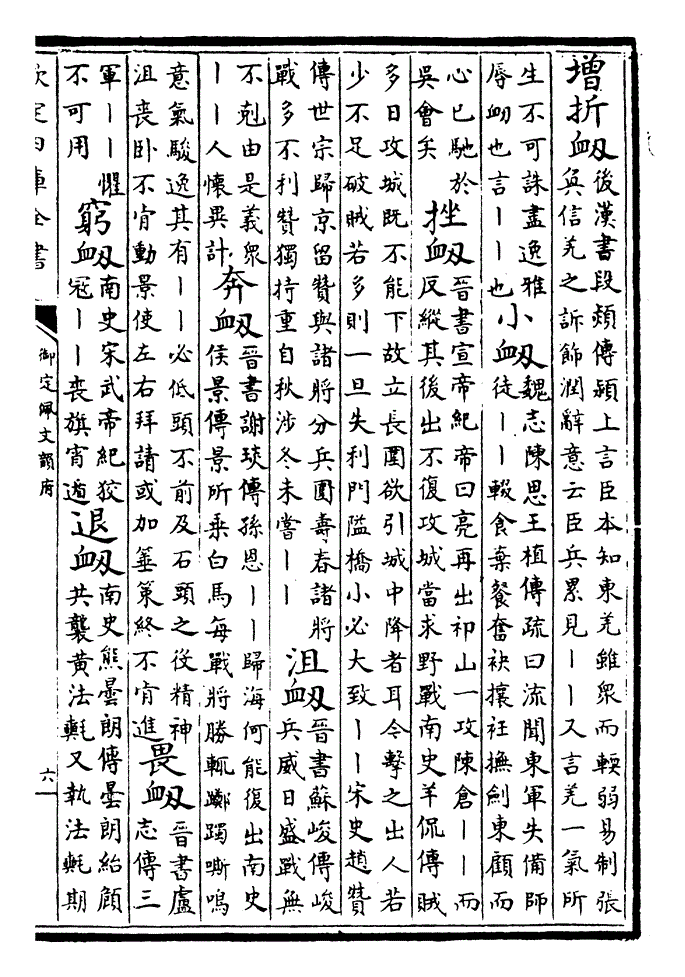 增折衂後漢書段熲傳熲上言臣本知東羌雖衆而輭弱易制張
奐信羌之訴飾潤辭意云臣兵累見丨丨又言羌一氣所
生不可誅盡逸雅
辱衂也言丨丨也
小衂魏志陳思王植傳疏曰流聞東軍失備師
徒丨丨輟食棄餐奮袂攘衽撫劍東顧而
心已馳於
吳會矣
挫衂晉書宣帝紀帝曰亮再出祁山一攻陳倉丨丨而
反縱其後出不復攻城當求野戰南史羊侃傳賊
多日攻城既不能下故立長圍欲引城中降者耳今擊之出人若
少不足破賊若多則一旦失利門隘橋小必大致丨丨宋史趙贊
傳世宗歸京留贊與諸將分兵圍壽春諸將
戰多不利贊獨持重自秋涉冬未嘗丨丨
沮衂晉書蘇峻傳峻
兵威日盛戰無
不剋由是義衆
丨丨人懷異計
奔衂晉書謝琰傳孫恩丨丨歸海何能復出南史
侯景傳景所乗白馬每戰將勝輒躑躅嘶鳴
意氣駿逸其有丨丨必低頭不前及石頭之役精神
沮喪卧不肯動景使左右拜請或加箠策終不肯進
畏衂晉書盧
志傳三
軍丨丨懼
不可用
窮衂南史宋武帝紀狡
冦丨丨喪旗宵遁
退衂南史熊曇朗傳曇朗紿顧
共襲黄法𣰰又執法𣰰期
欽定四庫全書
御定佩文韻府
六